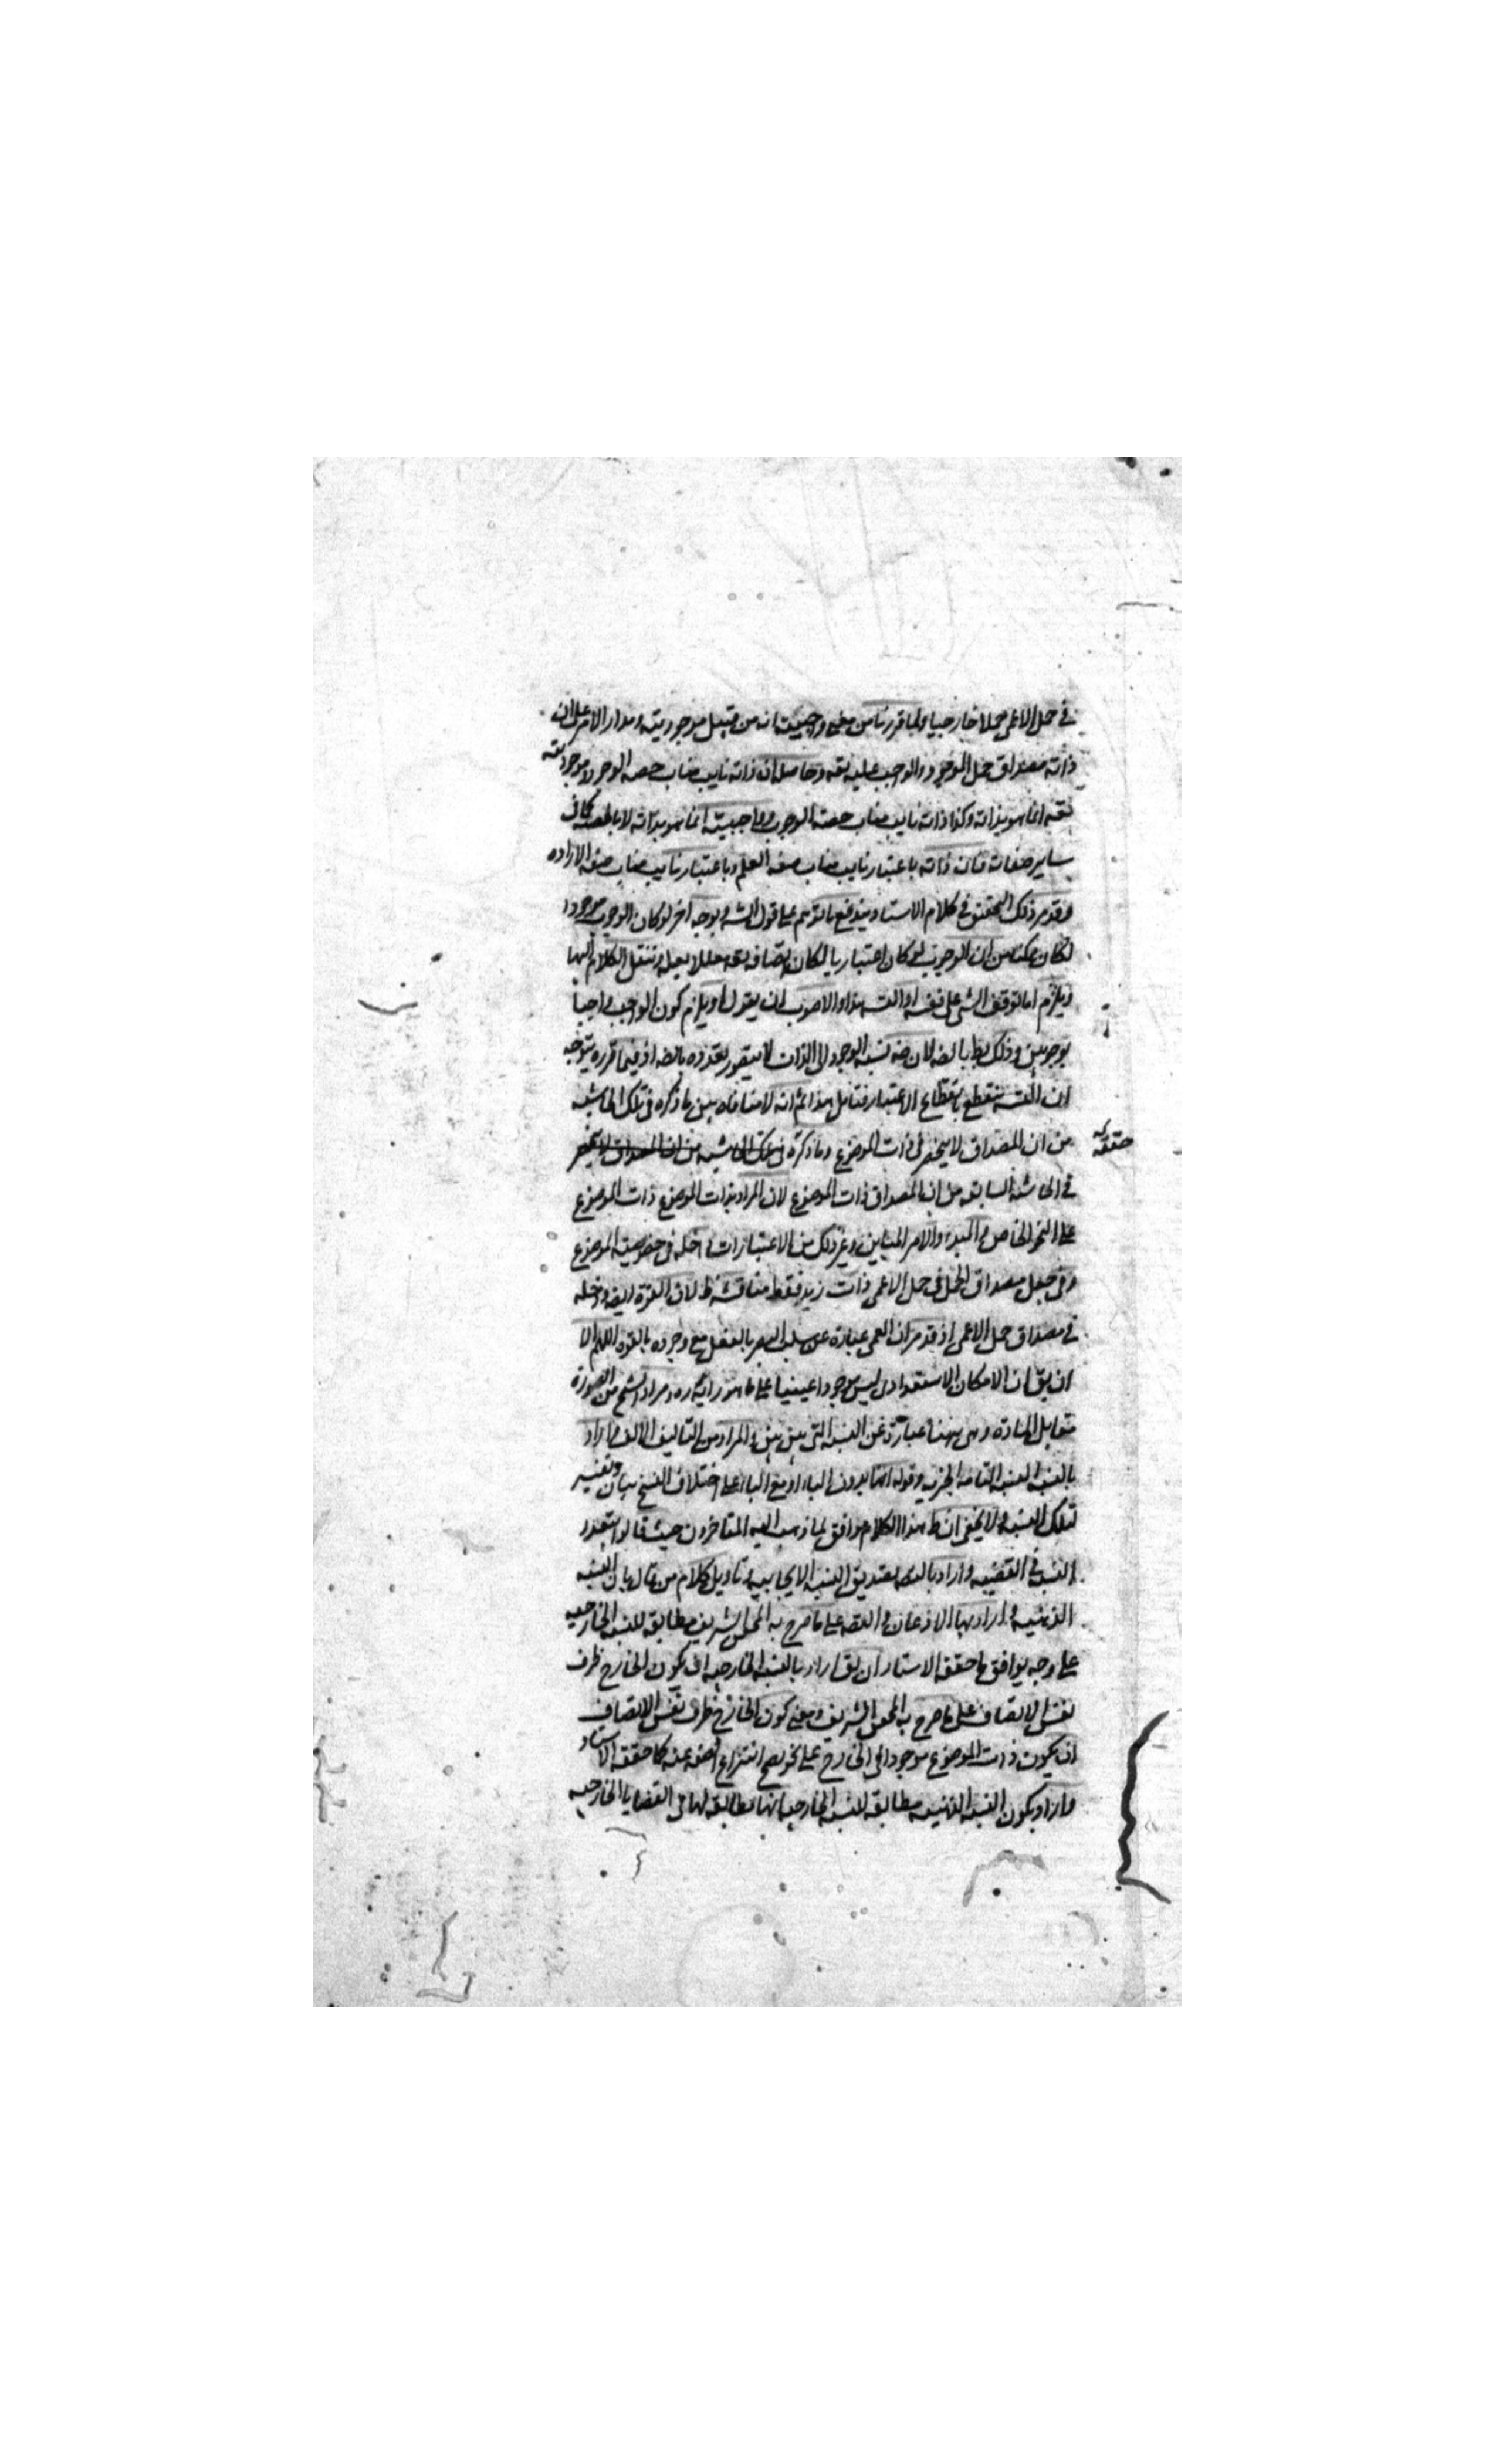 في حمل الاعمى حملا خارجيا ولما قررنا من معنى واجبيته انه من قبيل موجوديته ومدار الامر على ان
ذاته مصداق حمل الموجود والواجب عليه تعه وحاصله ان ذاته نايب مناب حصه الوجود لا موجوديته
تعه انما هو بذاته وكذا ذاته نايب مناب حصه الوجوب وواجبيته انما هو بذاته لا بالحصه كما في
ساير صفاته فان ذاته باعتبار نايب مناب صفه العلم وباعتبار نايب مناب صفه الاراده
وقد مر ذلك التحقيق في كلام الاستاد يندفع ما توهم على قول الش وبوجه اخر لو كان الوجوب موجودا
لكان ممكنا من ان الوجوب لو كان اعتباريا لكان اتصافه تعه معللا بعله وننقل الكلام اليها
ويلزم اما توقف الشي على نفسه او التسه هذا والاصوب ان يقول او يلزم كون الواجب واجبا
بوجوبين وذلك بط بالضه لان نسبه الوجود الى الذات لا يتصور تعدده بالضه اذ فيما قرره يتوجه
ان التسه ينقطع بانقطاع الاعتبار فتامل هذا ثم انه لا منافاه بين ما ذكره في تلك الحاشيه
من ان المصداق لا ينحصر في ذات الموضوع وما ذكره في تلك الحاشيه من ان المصداق لا ينحصر
حققه
في الحاشيه السابقه من ان المصداق ذات الموضوع لان المراد بذات الموضوع ذات الموضوع
على النحو الخاص والمبدء والامر المباين وغير ذلك من الاعتبارات داخله في خصوصيه الموضوع
وفي جعل مصداق الحمل في حمل الاعمى ذات زيد فقط مناقشه ظ لان القوة ايضه داخله
في مصداق حمل الاعمى اذ قد مر ان العمى عبارة عن سلب البصر بالفعل مع وجوده بالقوه اللهم الا
ان يق ان الامكان الاستعدادي ليس موجودا عينيا على ما هو رايه ره ومراد الشيخ من الصورة
مقابل المادة وهي ههنا عبارة عن النسبه التي بين بين والمراد من التاليف الالف واراد
بالنسبه النسبه التامه الخبريه وقوله انها بدون الباء او مع الباء على اختلاف النسخ بيان وتفسير
لتلك النسبه ولا يخفى ان ظ هذا الكلام موافق لما ذهب اليه المتاخرون حيث قالوا بتعدد
النسبه في القضيه واراد بالتصديق النسبه الايجابيه وتاويل كلام من قال بان النسبه
الذهنيه واراد بها الاذعان والتصه على ما صرح به المحقق الشريف مطابقه للنسبه الخارجيه
على وجه يوافق ما حققه الاستاد ان يق اراد بالنسبه الخارجيه ان يكون الخارج ظرف
نفس الاتصاف على ما صرح به المحقق الشريف ومعنى كون الخارج ظرف نفس الاتصاف
ان يكون ذات الموضوع موجودا في الخارج على نحو يصح انتزاع الصفه عنه كما حققه الاستاد
واراد بكون النسبه الذهنيه مطابقه للنسبه الخارجيه انها مطابقه لها في القضايا الخارجيه